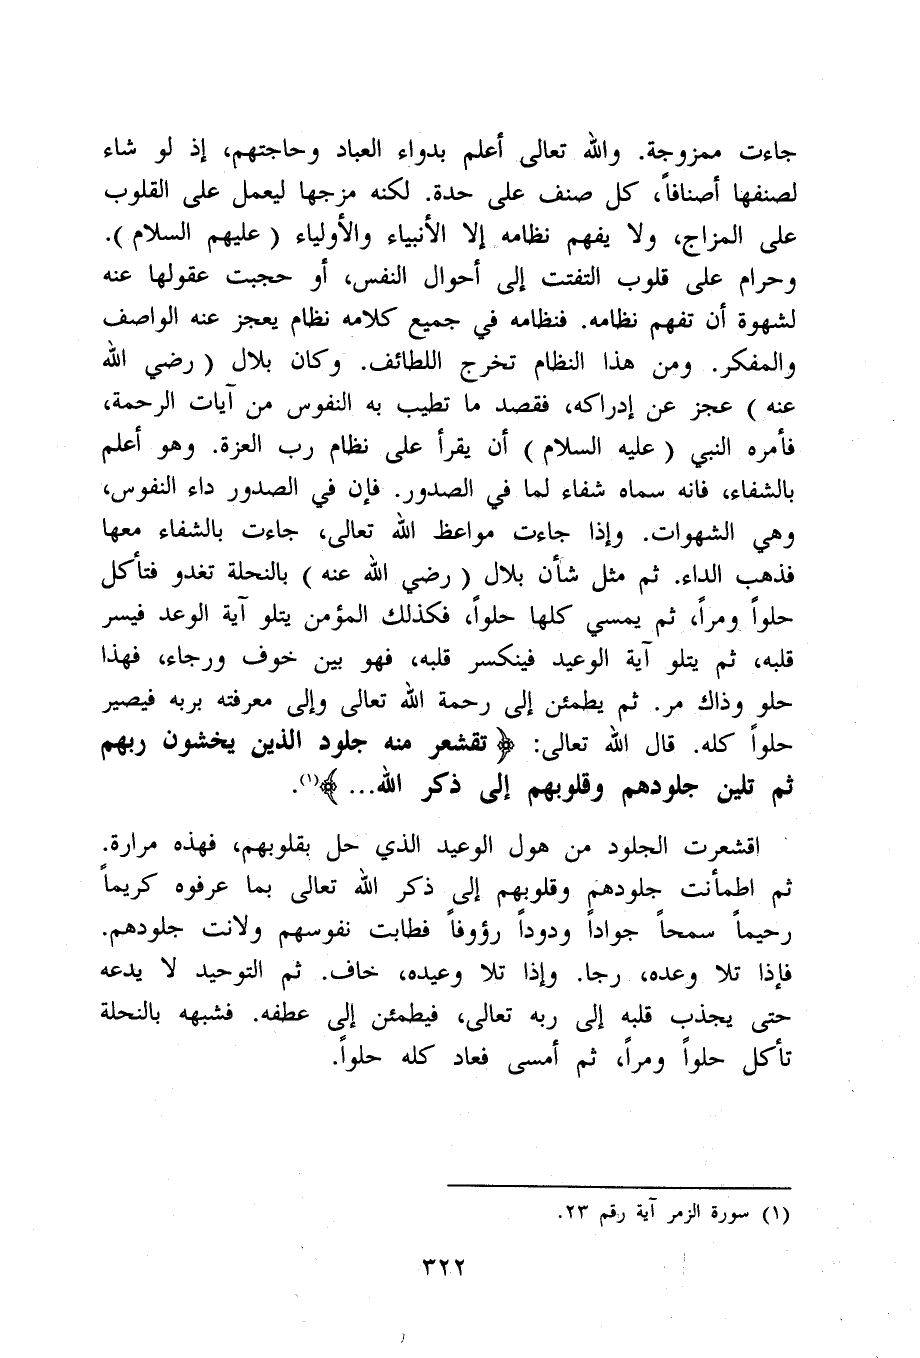 جاءت ممزوجة. والله تعالى أعلم بدواء العباد وحاجتهم، إذ لو شاء
لصنفها أصنافاً، كل صنف على حدة. لكنه مزجها ليعمل على القلوب
على المزاج، ولا يفهم نظامه إلا الأنبياء والأولياء ( عليهم السلام ).
وحرام على قلوب التفتت إلى أحوال النفس، أو حجبت عقولها عنه
لشهوة أن تفهم نظامه. فنظامه في جميع كلامه نظام يعجز عنه الواصف
والمفكر. ومن هذا النظام تخرج اللطائف. وكان بلال ( رضي الله
عنه ) عجز عن إدراكه، فقصد ما تطيب به النفوس من آيات الرحمة،
فأمره النبي ( عليه السلام ) أن يقرأ على نظام رب العزة. وهو أعلم
بالشفاء، فانه سماه شفاء لما في الصدور. فإن في الصدور داء النفوس،
وهي الشهوات. وإذا جاءت مواعظ الله تعالى، جاءت بالشفاء معها
فذهب الداء. ثم مثل شأن بلال ( رضي الله عنه ) بالنحلة تغدو فتأكل
حلواً ومراً، ثم يمسي كلها حلواً، فكذلك المؤمن يتلو آية الوعد فيسر
قلبه، ثم يتلو آية الوعيد فينكسر قلبه، فهو بين خوف ورجاء، فهذا
حلو وذاك مر. ثم يطمئن إلى رحمة الله تعالى وإلى معرفته بربه فيصير
حلواً كله. قال الله تعالى: ﴿ تقشعر منه جلود الذين يخشون ربهم
ثم تلين جلودهم وقلوبهم إلى ذكر الله... ﴾(١).
اقشعرت الجلود من هول الوعيد الذي حل بقلوبهم، فهذه مرارة.
ثم اطمأنت جلودهم وقلوبهم إلى ذكر الله تعالى بما عرفوه كريماً
رحيماً سمحاً جواداً ودوداً رؤوفاً فطابت نفوسهم ولانت جلودهم.
فإذا تلا وعده، رجا. وإذا تلا وعيده، خاف. ثم التوحيد لا يدعه
حتى يجذب قلبه إلى ربه تعالى، فيطمئن إلى عطفه. فشبهه بالنحلة
تأكل حلواً ومراً، ثم أمسى فعاد كله حلواً.
(١) سورة الزمر آية رقم ٢٣.
٣٢٢